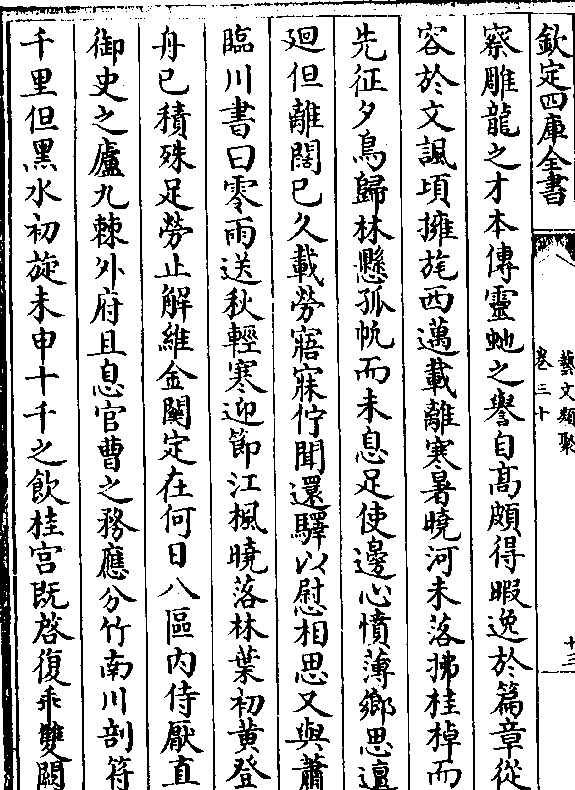 欽定四庫全書
藝文類聚
卷三十
十三
察雕龍之才本傳靈虵之譽自髙頗得暇逸於篇章從
容於文諷頃擁旄西邁載離寒暑曉河未落拂桂棹而
先征夕鳥歸林懸孤帆而未息足使邊心憤薄鄉思邅
廻但離闊已久載勞寤寐佇聞還驛以慰相思又與蕭
臨川書曰零雨送秋輕寒迎節江楓曉落林葉初黄登
舟已積殊足勞止解維金闕定在何日八區内侍厭直
御史之廬九棘外府且息官曹之務應分竹南川剖符
千里但黒水初旋未申十千之飲桂宫既啓復乖雙闕